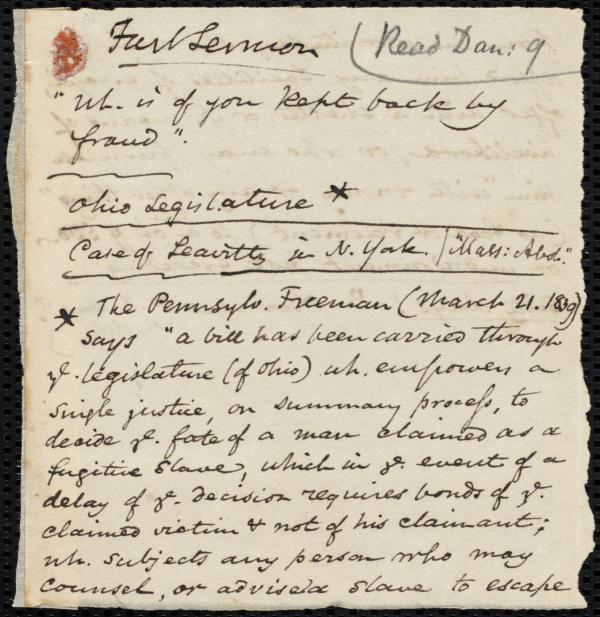 Fast Sermon (Read Dan: 9
"wh. is of you kept back by
fraud".
Ohio Legislature *
Case of Leavitt, in N. York. / "Mass: Abol."
* The Pennsylv. Freeman (March 21. 1839)
says "a bill has been carried through
ye. legislature (of Ohio) wh. empowers a
single justice, on summary process, to
decide ye. fate of a man claimed as a
fugitive slave, which in ye. event of a
delay of ye. decision requires bonds of ye.
claimed victim & not of his claimant;
wh. subjects any person who may
counsel, or advise a slave to escape